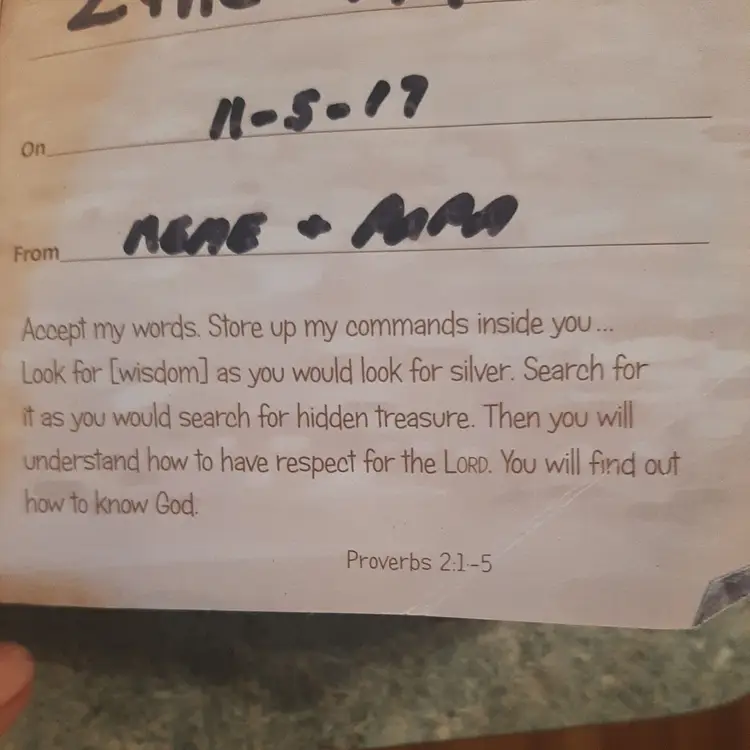 On 11-5-17
From MEME + PAPA
Accept my words. Store up my commands inside you...
Look for [wisdom] as you would look for silver. Search for
it as you would search for hidden treasure. Then you will
understand how to have respect for the LORD. You will find out
how to know God.
Proverbs 2:1-5